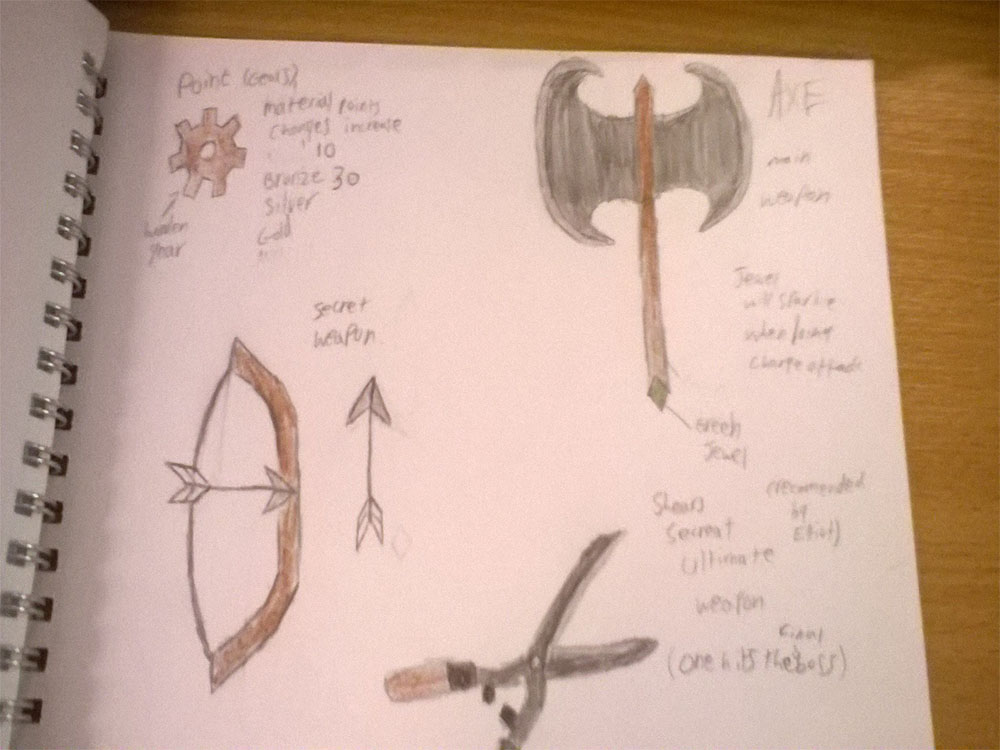 Point (Gears)
material points
changes increase
" 10
Bronze 30
Silver
Gold
wooden
gear
AXE
main
weapon
Jewel
will sparkle
when using
charge attack
Green
Jewel
secret
weapon
Shears
Secreat
Ultimate
weapon
(recomended
by
Eliot)
final
(one hits the boss)